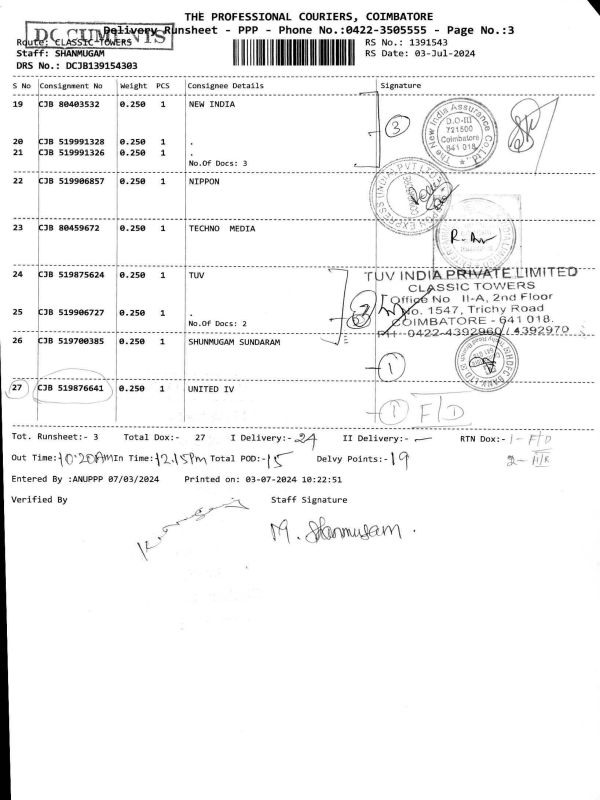 THE PROFESSIONAL COURIERS, COIMBATORE
DOCUMENTS
Delivery Runsheet - PPP - Phone No.:0422-3505555 - Page No.:3
Route: CLASSIC TOWERS
RS No.: 1391543
Staff: SHANMUGAM
RS Date: 03-Jul-2024
DRS No.: DCJB139154303
S No Consignment No Weight PCS Consignee Details Signature
19 CJB 80403532 0.250 1 NEW INDIA
3
The New India Assurance Co. Ltd.
D.O-III
721500
Coimbatore
641 018
20 CJB 519991328 0.250 1 .
21 CJB 519991326 0.250 1 .
No.Of Docs: 3
22 CJB 519906857 0.250 1 NIPPON
EXPRESS (INDIA) PVT LTD
23 CJB 80459672 0.250 1 TECHNO MEDIA
24 CJB 519875624 0.250 1 TUV
TUV INDIA PRIVATE LIMITED
CLASSIC TOWERS
Office No II-A, 2nd Floor
No. 1547, Trichy Road
COIMBATORE - 641 018.
PH : 0422-4392960 / 4392970
25 CJB 519906727 0.250 1 .
No.Of Docs: 2
26 CJB 519700385 0.250 1 SHUNMUGAM SUNDARAM
1
HDFC BANK LTD
27 CJB 519876641 0.250 1 UNITED IV
1 F/D
Tot. Runsheet:- 3 Total Dox:- 27 I Delivery:- 24 II Delivery:- — RTN Dox:- 1 - F/D
2 - H/R
Out Time:- 10:20AM In Time:- 12.15Pm Total POD:- 15 Delvy Points:- 19
Entered By :ANUPPP 07/03/2024 Printed on: 03-07-2024 10:22:51
Verified By Staff Signature
M. Shanmugam.